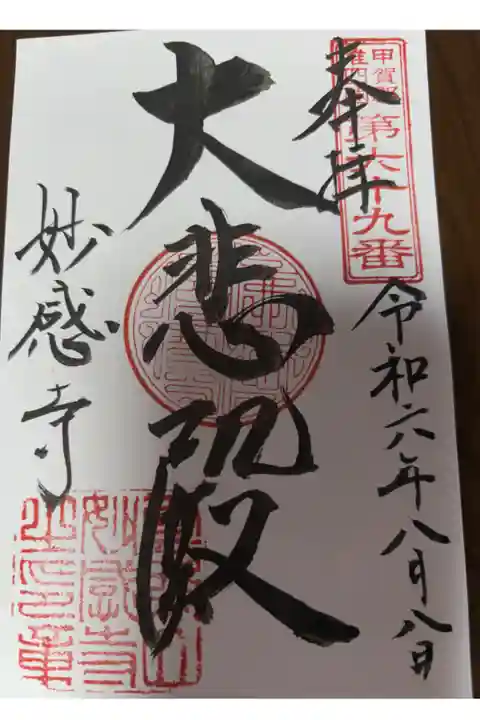 奉拝
甲賀郡
准四国
第六十九番
令和六年八月八日
大悲殿
妙感寺